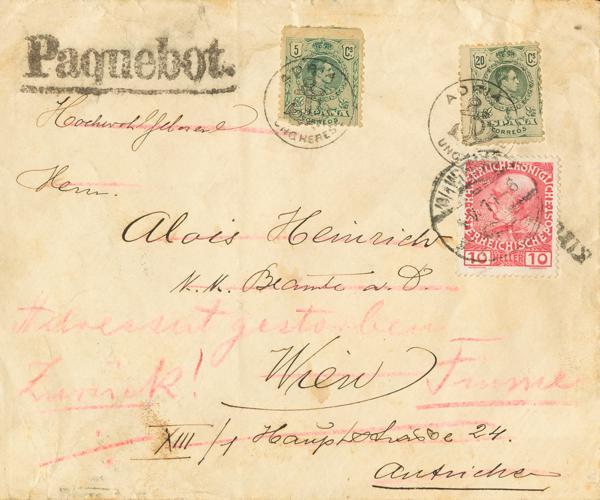 Paquebot.
5 Cs
ESPAÑA
CORREOS
ADRIA
UNGHERESE
20 Cs
ESPAÑA
CORREOS
ADRIA
Hochwohlgeboren
Herrn
KAISERLICHE KÖNIGLICHE
ÖSTERREICHISCHE POST
10 HELLER 10
Alois Heinrich
K. K. Beamte a. D.
Adressat gestorben
Zurück! Fiume
Wien
XIII/1 Hauptstrasse 24.
Autriche